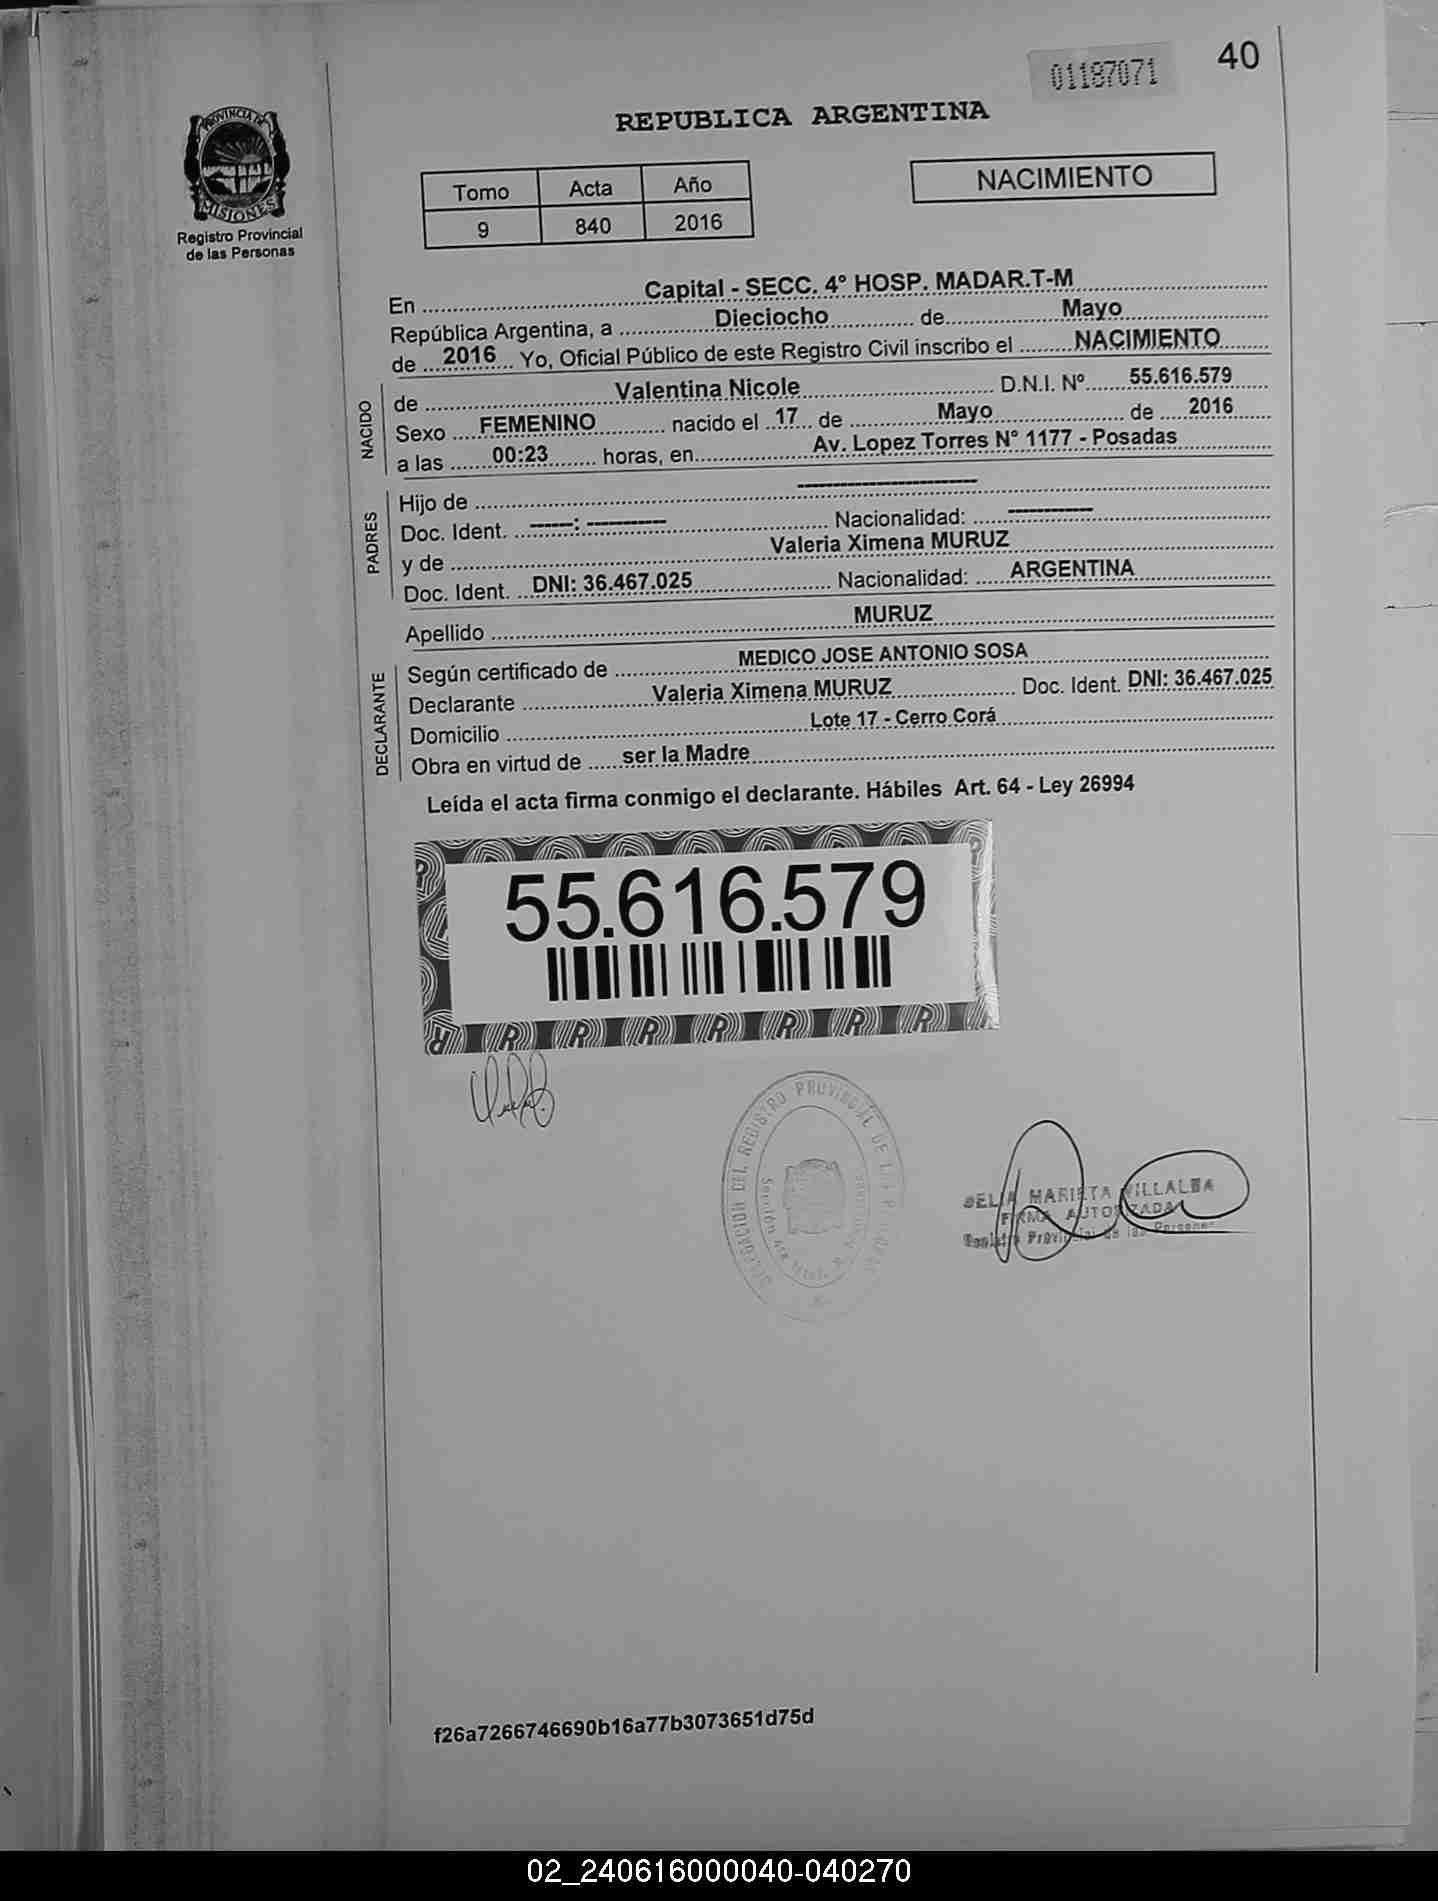 01187071
40
PROVINCIA DE
MISIONES
Registro Provincial
de las Personas
REPUBLICA ARGENTINA
Tomo Acta Año
9 840 2016
NACIMIENTO
En Capital - SECC. 4° HOSP. MADAR.T-M
República Argentina, a Dieciocho de Mayo
de 2016 Yo, Oficial Público de este Registro Civil inscribo el NACIMIENTO
NACIDO
de Valentina Nicole D.N.I. Nº 55.616.579
Sexo FEMENINO nacido el 17 de Mayo de 2016
a las 00:23 horas, en Av. Lopez Torres N° 1177 - Posadas
PADRES
Hijo de ------------------------
Doc. Ident. ------: ----------- Nacionalidad: ------------
y de Valeria Ximena MURUZ
Doc. Ident. DNI: 36.467.025 Nacionalidad: ARGENTINA
Apellido MURUZ
DECLARANTE
Según certificado de MEDICO JOSE ANTONIO SOSA
Declarante Valeria Ximena MURUZ Doc. Ident. DNI: 36.467.025
Domicilio Lote 17 - Cerro Corá
Obra en virtud de ser la Madre
Leída el acta firma conmigo el declarante. Hábiles Art. 64 - Ley 26994
55.616.579
DELEGACION DEL REGISTRO PROVINCIAL DE
Sección
MARIETA VILLALBA
FIRMA AUTORIZADA
Registro Provincial de las Personas
f26a7266746690b16a77b3073651d75d
02_240616000040-040270